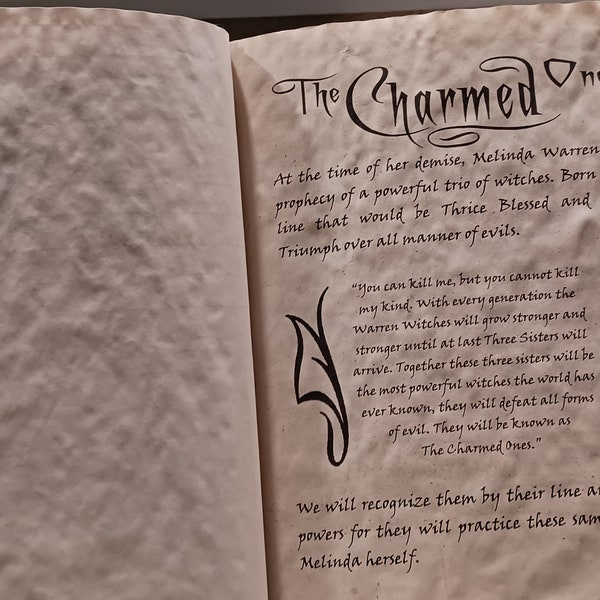 The Charmed On
At the time of her demise, Melinda Warren
prophecy of a powerful trio of witches. Born
line that would be Thrice Blessed and
Triumph over all manner of evils.
"You can kill me, but you cannot kill
my kind. With every generation the
Warren Witches will grow stronger and
stronger until at last Three Sisters will
arrive. Together these three sisters will be
the most powerful witches the world has
ever known, they will defeat all forms
of evil. They will be known as
The Charmed Ones."
We will recognize them by their line a
powers for they will practice these sam
Melinda herself.